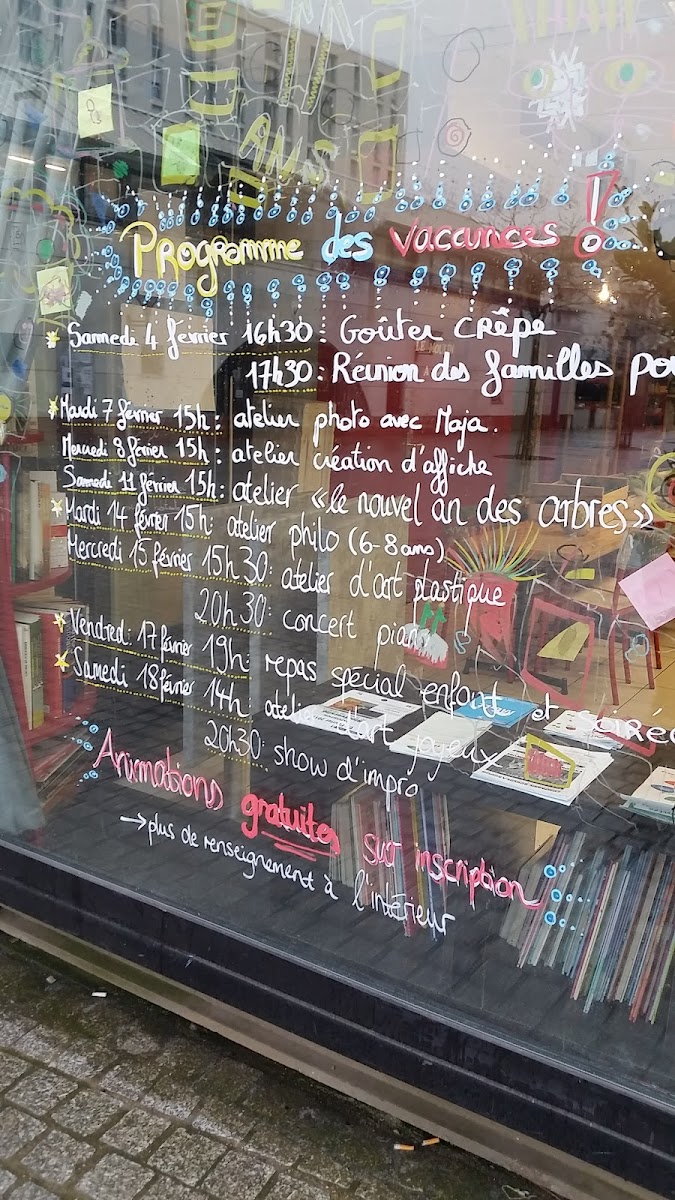 Programme des vacances !
Samedi 4 février 16h30 : Goûter crêpe
17h30 : Réunion des familles
Mardi 7 février 15h : atelier photo avec Maja.
Mercredi 8 février 15h : atelier création d'affiche
Samedi 11 février 15h : atelier « le nouvel an des arbres »
Mardi 14 février 15h : atelier philo (6-8 ans)
Mercredi 15 février 15h30 : atelier d'art plastique
20h30 : concert piano
Vendredi 17 février 19h : repas spécial enfant et
Samedi 18 février 14h atelier d'art joyeux
20h30 : show d'impro
Animations gratuites sur inscription
→ plus de renseignement à l'intérieur